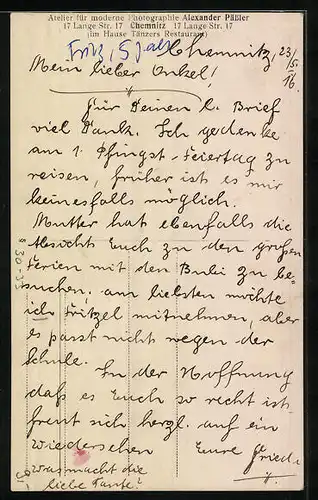 Atelier für moderne Photographie Alexander Päßler
17 Lange Str. 17 Chemnitz 17 Lange Str. 17
(im Hause Tänzers Restaurant)
Fritz, 5 Jahr
Chemnitz, 23/5. 16.
Mein lieber Onkel!
Für Deinen l. Brief
viel Dank. Ich gedenke
am 1. Pfingst-Feiertag zu
reisen, früher ist es mir
keinesfalls möglich.
Mutter hat ebenfalls die
Absicht Euch zu den großen
Ferien mit den Bubi zu be-
suchen, am liebsten möchte
ich Fritzel mitnehmen, aber
es passt nicht wegen der
Schule.
In der Hoffnung
daß es Euch so recht ist
freut sich herzl. auf ein
Wiedersehen Eure Fried
was macht die
liebe Tante?